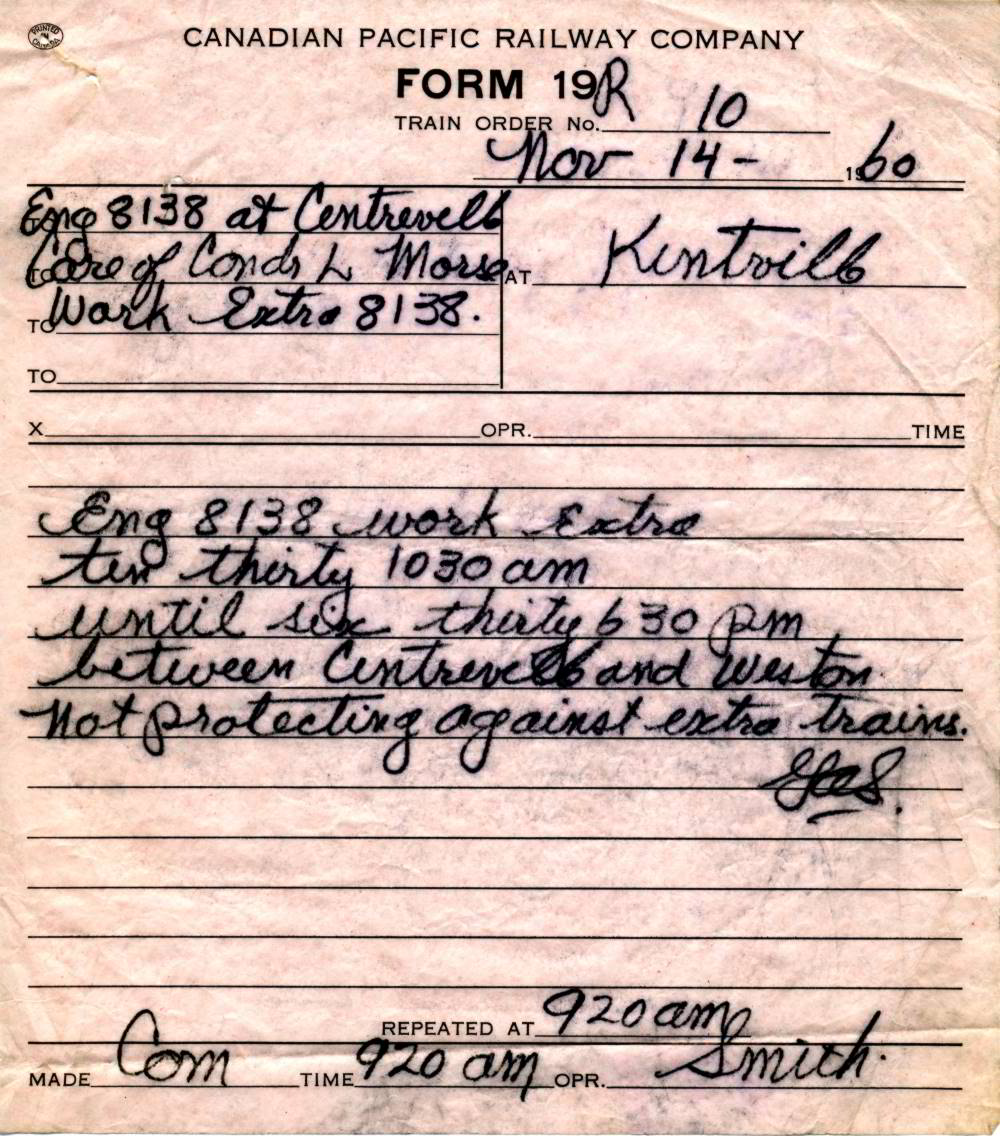 PRINTED IN CANADA
CANADIAN PACIFIC RAILWAY COMPANY
FORM 19R
TRAIN ORDER No. 10
Nov 14 - 1960
Eng 8138 at Centreville
TO Care of Condr L Morse AT Kentville
TO Work Extra 8138.
TO
X OPR. TIME
Eng 8138 work Extra
ten thirty 1030 am
until six thirty 630 pm
between Centreville and Weston
Not protecting against extra trains.
REPEATED AT 920 am
MADE Com TIME 920 am OPR. Smith.